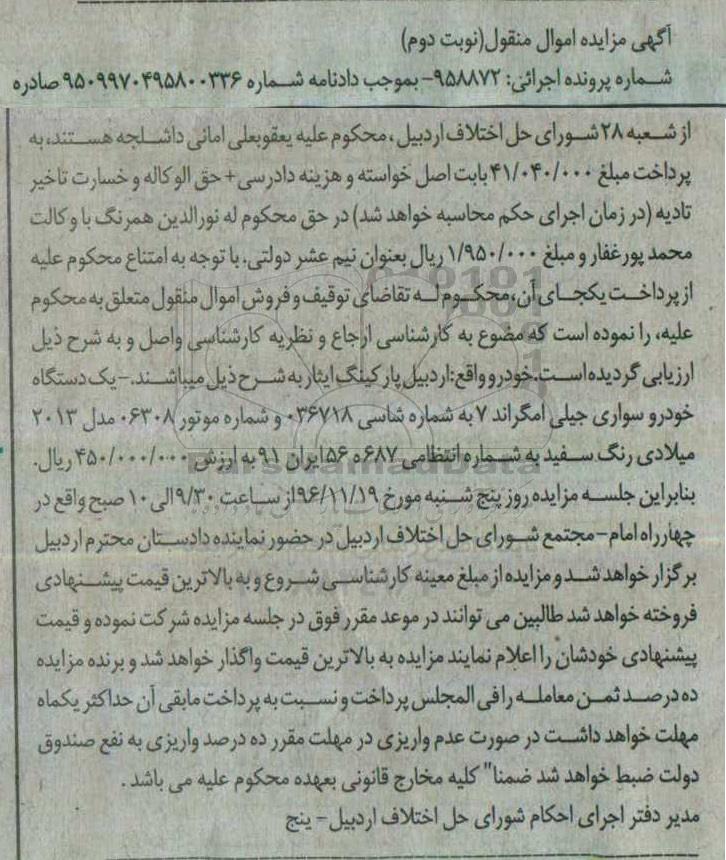 آگهی مزایده اموال منقول(نوبت دوم)
شماره پرونده اجرائی: ۹۵۸۸۷۲- بموجب دادنامه شماره ۹۵۰۹۹۷۰۴۹۵۸۰۰۳۳۶ صادره
از شعبه ۲۸ شورای حل اختلاف اردبیل، محکوم علیه یعقوبعلی امانی داشلجه هستند، به
پرداخت مبلغ ۴۱/۰۴۰/۰۰۰ بابت اصل خواسته و هزینه دادرسی + حق الوکاله و خسارت تاخیر
تادیه (در زمان اجرای حکم محاسبه خواهد شد) در حق محکوم له نورالدین همرنگ با وکالت
محمد پورغفار و مبلغ ۱/۹۵۰/۰۰۰ ریال بعنوان نیم عشر دولتی. با توجه به امتناع محکوم علیه
از پرداخت یکجای آن، محکوم له تقاضای توقیف و فروش اموال منقول متعلق به محکوم
علیه، را نموده است که مضوع به کارشناسی ارجاع و نظریه کارشناسی واصل و به شرح ذیل
ارزیابی گردیده است. خودرو واقع: اردبیل پارکینگ ایثار به شرح ذیل میباشند. - یک دستگاه
خودرو سواری جیلی امگراند ۷ به شماره شاسی ۰۳۶۷۱۸ و شماره موتور ۰۶۳۰۸ مدل ۲۰۱۳
میلادی رنگ سفید به شماره انتظامی ۶۸۷ ه ۵۶ ایران ۹۱ به ارزش ۴۵۰/۰۰۰/۰۰۰ ریال.
بنابراین جلسه مزایده روز پنج شنبه مورخ ۹۶/۱۱/۱۹ از ساعت ۹/۳۰ الی ۱۰ صبح واقع در
چهارراه امام- مجتمع شورای حل اختلاف اردبیل در حضور نماینده دادستان محترم اردبیل
برگزار خواهد شد و مزایده از مبلغ معینه کارشناسی شروع و به بالاترین قیمت پیشنهادی
فروخته خواهد شد طالبین می توانند در موعد مقرر فوق در جلسه مزایده شرکت نموده و قیمت
پیشنهادی خودشان را اعلام نمایند مزایده به بالاترین قیمت واگذار خواهد شد و برنده مزایده
ده درصد ثمن معامله را فی المجلس پرداخت و نسبت به پرداخت مابقی آن حداکثر یکماه
مهلت خواهد داشت در صورت عدم واریزی در مهلت مقرر ده درصد واریزی به نفع صندوق
دولت ضبط خواهد شد ضمنا" کلیه مخارج قانونی بعهده محکوم علیه می باشد.
مدیر دفتر اجرای احکام شورای حل اختلاف اردبیل- ینج